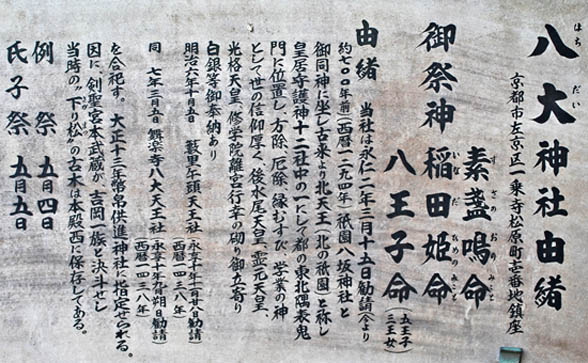 八大神社由緒
はちだい
京都市左京区一乗寺松原町壱番地鎮座
御祭神
素盞嗚命
すさのおのみこと
稲田姫命
いなだひめのみこと
八王子命
五王子
三王女
由緒
当社は永仁二年三月十五日勧請今より
約七〇〇年前(西暦一二九四年)祇園八坂神社と
御同神に坐し古来より北天王(北の祇園)と称し
皇居守護神十二社中の一にして都の東北隅表鬼
門に位置し、方除、厄除、縁むすび、学業の神
として世の信仰厚く、後水尾天皇、霊元天皇、
光格天皇、修学院離宮行幸の砌り御立寄り
白銀等御奉納あり
明治六年十月五日 藪里牛頭天王社(永享十年十一月廿八日勧請)
西暦一四三八年
同 七年三月五日 舞楽寺八大天王社(永享十年九月朔日勧請)
西暦一四三八年
を合祀す。大正十三年幣帛供進神社に指定せられる。
因に剣聖宮本武蔵が、吉岡一族と決斗せし
当時の“下り松”の古木は本殿西に保存してある。
例祭 五月四日
氏子祭 五月五日